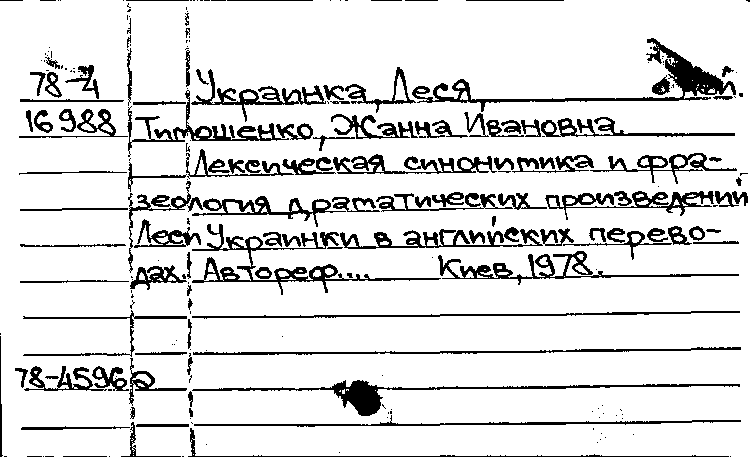 78-4 Украинка, Леся,
16988 Тимошенко, Жанна Ивановна.
Лексическая синонимика и фра-
зеология драматических произведений
Леси Украинки в английских перево-
дах. Автореф.... Киев, 1978.
78-4596а